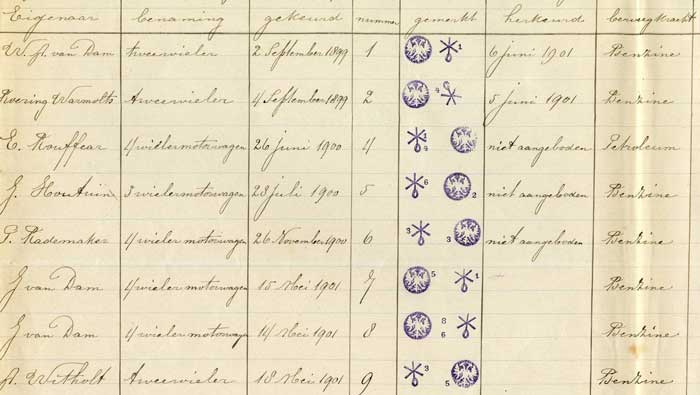 Eigenaar benaming gekeurd nummer gemerkt herkeurd beweegkracht
W. A. van Dam tweewieler 2 September 1899 1 1 6 juni 1901 Benzine
Warmolts tweewieler 4 September 1899 2 4 5 juni 1901 Benzine
E. Rouffear 4 wielermotorwagen 26 juni 1900 4 4 niet aangeboden Petroleum
J. Houtuin 3 wielermotorwagen 28 juli 1900 5 6 2 niet aangeboden Benzine
P. Rademaker 4 wieler motorwagen 26 November 1900 6 3 3 niet aangeboden Benzine
J van Dam 4 wieler motorwagen 15 Mei 1901 7 5 1 Benzine
J van Dam 4 wieler motorwagen 14 Mei 1901 8 8 6 Benzine
A. Witholt tweewieler 18 Mei 1901 9 3 5 Benzine